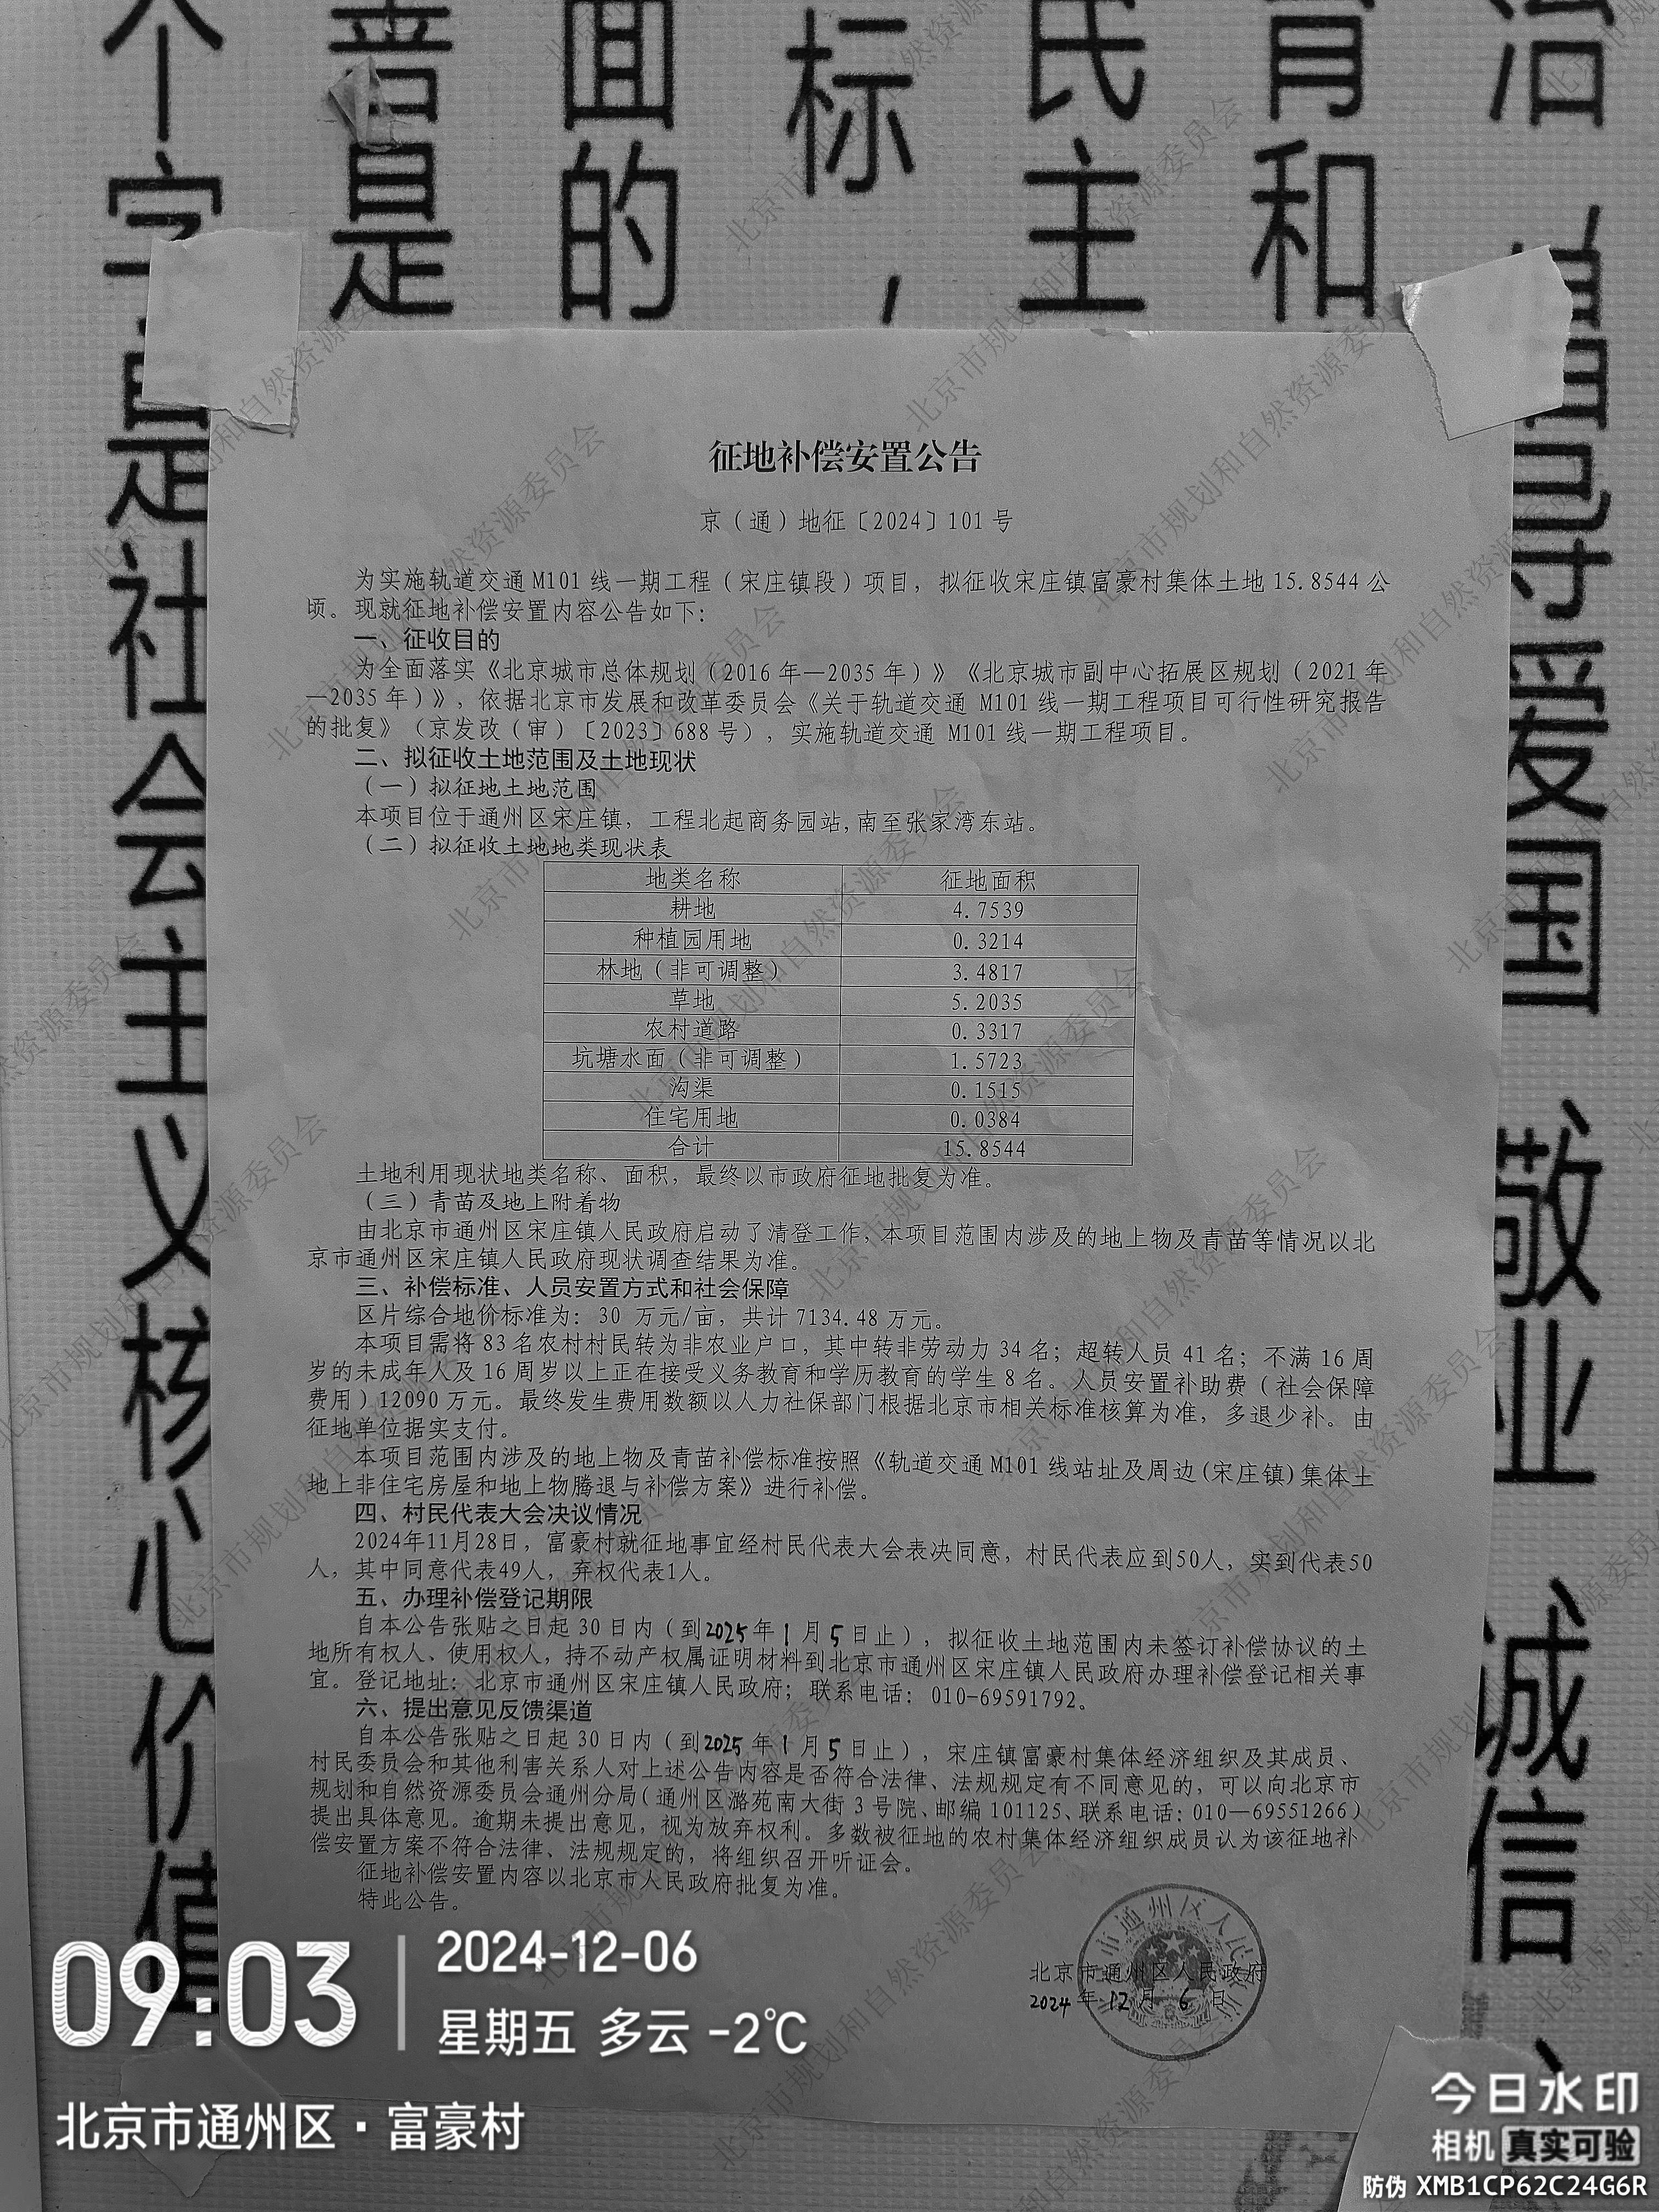 个 普 面 标 民 育 治
字 是 的 ， 主 和
是社会主义核心价值
爱国
敬业
诚信
、
征地补偿安置公告
京（通）地征〔2024〕101 号
为实施轨道交通 M101 线一期工程（宋庄镇段）项目，拟征收宋庄镇富豪村集体土地 15.8544 公
顷。现就征地补偿安置内容公告如下：
一、征收目的
为全面落实《北京城市总体规划（2016 年—2035 年）》《北京城市副中心拓展区规划（2021 年
—2035 年）》，依据北京市发展和改革委员会《关于轨道交通 M101 线一期工程项目可行性研究报告
的批复》（京发改（审）〔2023〕688 号），实施轨道交通 M101 线一期工程项目。
二、拟征收土地范围及土地现状
（一）拟征地土地范围
本项目位于通州区宋庄镇，工程北起商务园站,南至张家湾东站。
（二）拟征收土地地类现状表
地类名称 征地面积
耕地 4.7539
种植园用地 0.3214
林地（非可调整） 3.4817
草地 5.2035
农村道路 0.3317
坑塘水面（非可调整） 1.5723
沟渠 0.1515
住宅用地 0.0384
合计 15.8544
土地利用现状地类名称、面积，最终以市政府征地批复为准。
（三）青苗及地上附着物
由北京市通州区宋庄镇人民政府启动了清登工作，本项目范围内涉及的地上物及青苗等情况以北
京市通州区宋庄镇人民政府现状调查结果为准。
三、补偿标准、人员安置方式和社会保障
区片综合地价标准为：30 万元/亩，共计 7134.48 万元。
本项目需将 83 名农村村民转为非农业户口，其中转非劳动力 34 名；超转人员 41 名；不满 16 周
岁的未成年人及 16 周岁以上正在接受义务教育和学历教育的学生 8 名。人员安置补助费（社会保障
费用）12090 万元。最终发生费用数额以人力社保部门根据北京市相关标准核算为准，多退少补。由
征地单位据实支付。
本项目范围内涉及的地上物及青苗补偿标准按照《轨道交通 M101 线站址及周边(宋庄镇)集体土
地上非住宅房屋和地上物腾退与补偿方案》进行补偿。
四、村民代表大会决议情况
2024年11月28日，富豪村就征地事宜经村民代表大会表决同意，村民代表应到50人，实到代表50
人，其中同意代表49人，弃权代表1人。
五、办理补偿登记期限
自本公告张贴之日起 30 日内（到2025年 1 月 5 日止），拟征收土地范围内未签订补偿协议的土
地所有权人、使用权人，持不动产权属证明材料到北京市通州区宋庄镇人民政府办理补偿登记相关事
宜。登记地址：北京市通州区宋庄镇人民政府；联系电话：010-69591792。
六、提出意见反馈渠道
自本公告张贴之日起 30 日内（到2025年 1 月 5 日止），宋庄镇富豪村集体经济组织及其成员、
村民委员会和其他利害关系人对上述公告内容是否符合法律、法规规定有不同意见的，可以向北京市
规划和自然资源委员会通州分局(通州区潞苑南大街 3 号院、邮编 101125、联系电话：010—69551266）
提出具体意见。逾期未提出意见，视为放弃权利。多数被征地的农村集体经济组织成员认为该征地补
偿安置方案不符合法律、法规规定的，将组织召开听证会。
征地补偿安置内容以北京市人民政府批复为准。
特此公告。
北京市通州区人民政府
2024 年 12 月 6 日
09:03
2024-12-06
星期五 多云 -2℃
北京市通州区·富豪村
今日水印
相机 真实可验
防伪 XMB1CP62C24G6R
北京市规划和自然资源委员会